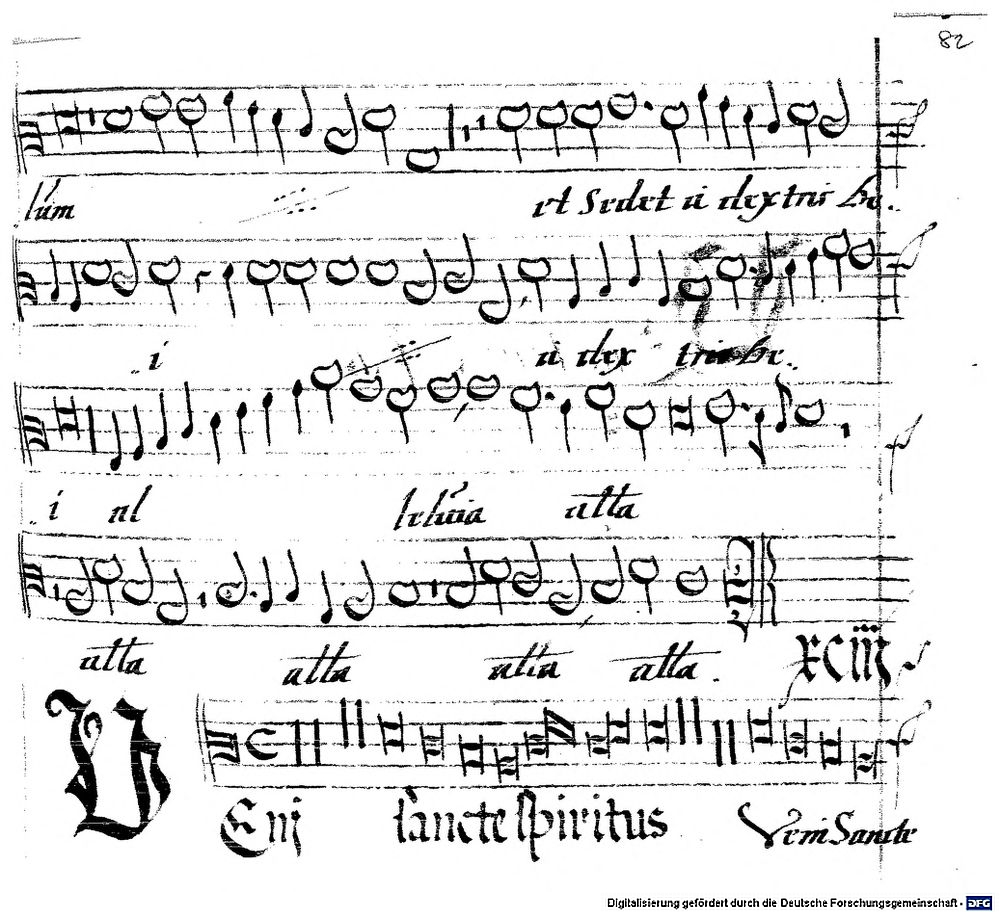 82
lum et Sedet a dextris De.
.. i a dex tris De..
.. i al leluia alla
alla alla alla alla .
XCiij
VEnj sancte spiritus Veni Sancte
Digitalisierung gefördert durch die Deutsche Forschungsgemeinschaft - DFG